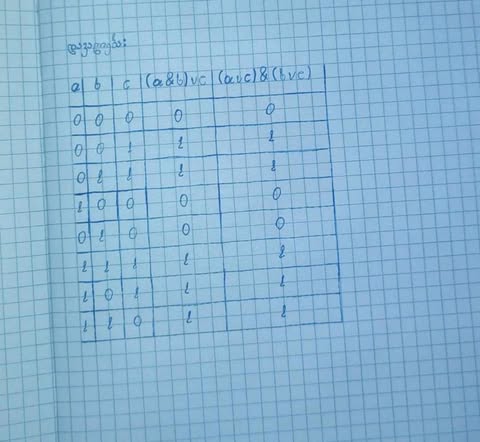 დავალება:
a b c (a&b)vc (avc)&(bvc)
0 0 0 0 0
0 0 1 1 1
0 1 1 1 1
1 0 0 0 0
0 1 0 0 0
1 1 1 1 1
1 0 1 1 1
1 1 0 1 1